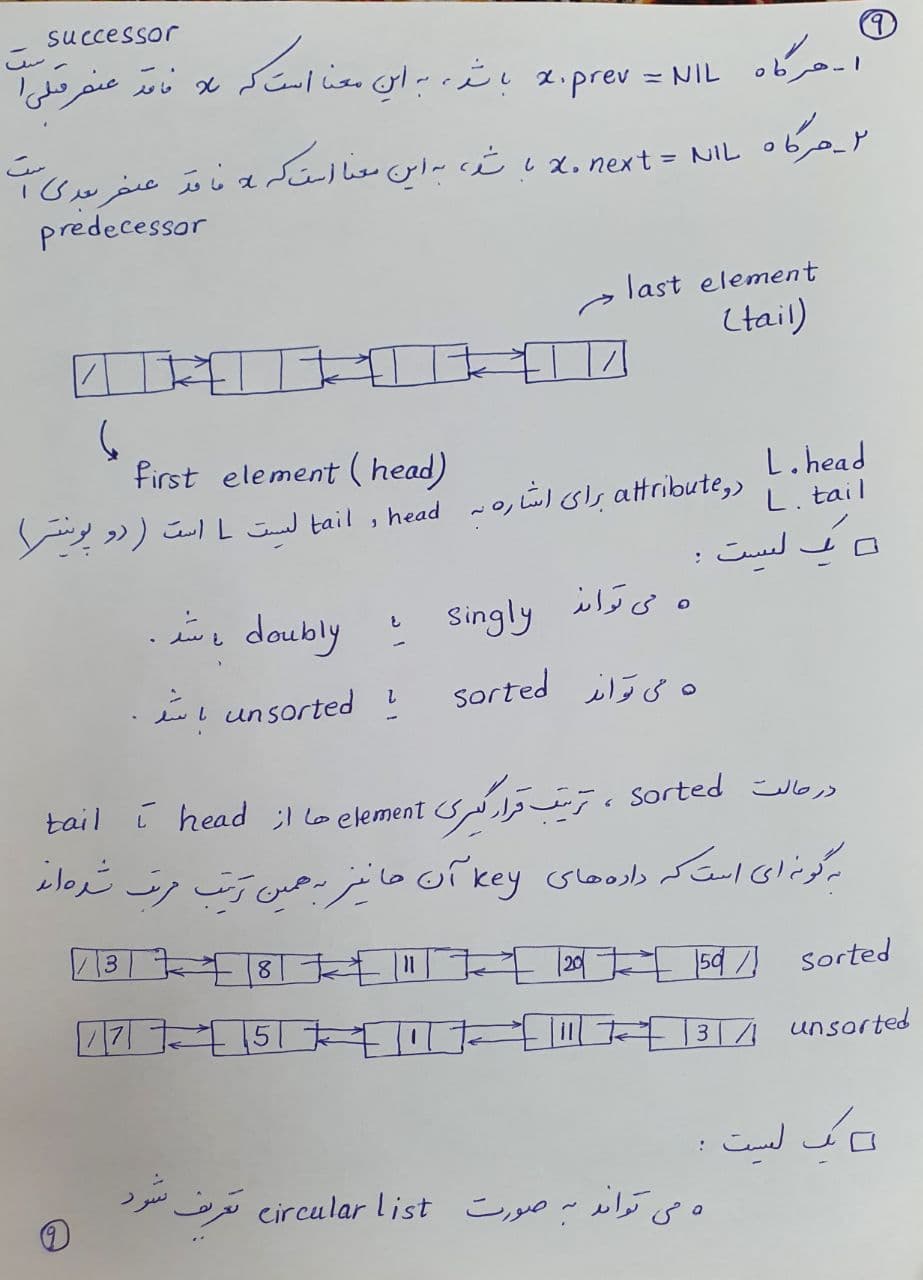 ۹
successor
۱_ هرگاه x.prev = NIL باشد، به این معنا است که x فاقد عنصر قبلی است
۲_ هرگاه x.next = NIL باشد، به این معنا است که x فاقد عنصر بعدی است
predecessor
last element
(tail)
first element (head)
L.head
L.tail
دو attribute برای اشاره به head و tail لیست L است (دو پوینتر)
□ یک لیست :
o می تواند singly یا doubly باشد.
o می تواند sorted یا unsorted باشد.
در حالت sorted، ترتیب قرارگیری element ها از head تا tail
به گونه ای است که داده های key آن ها نیز به همین ترتیب مرتب شده اند
/ 3 8 11 20 50 / sorted
/ 7 5 1 11 3 / unsorted
□ یک لیست :
o می تواند به صورت circular list تعریف شود
۹